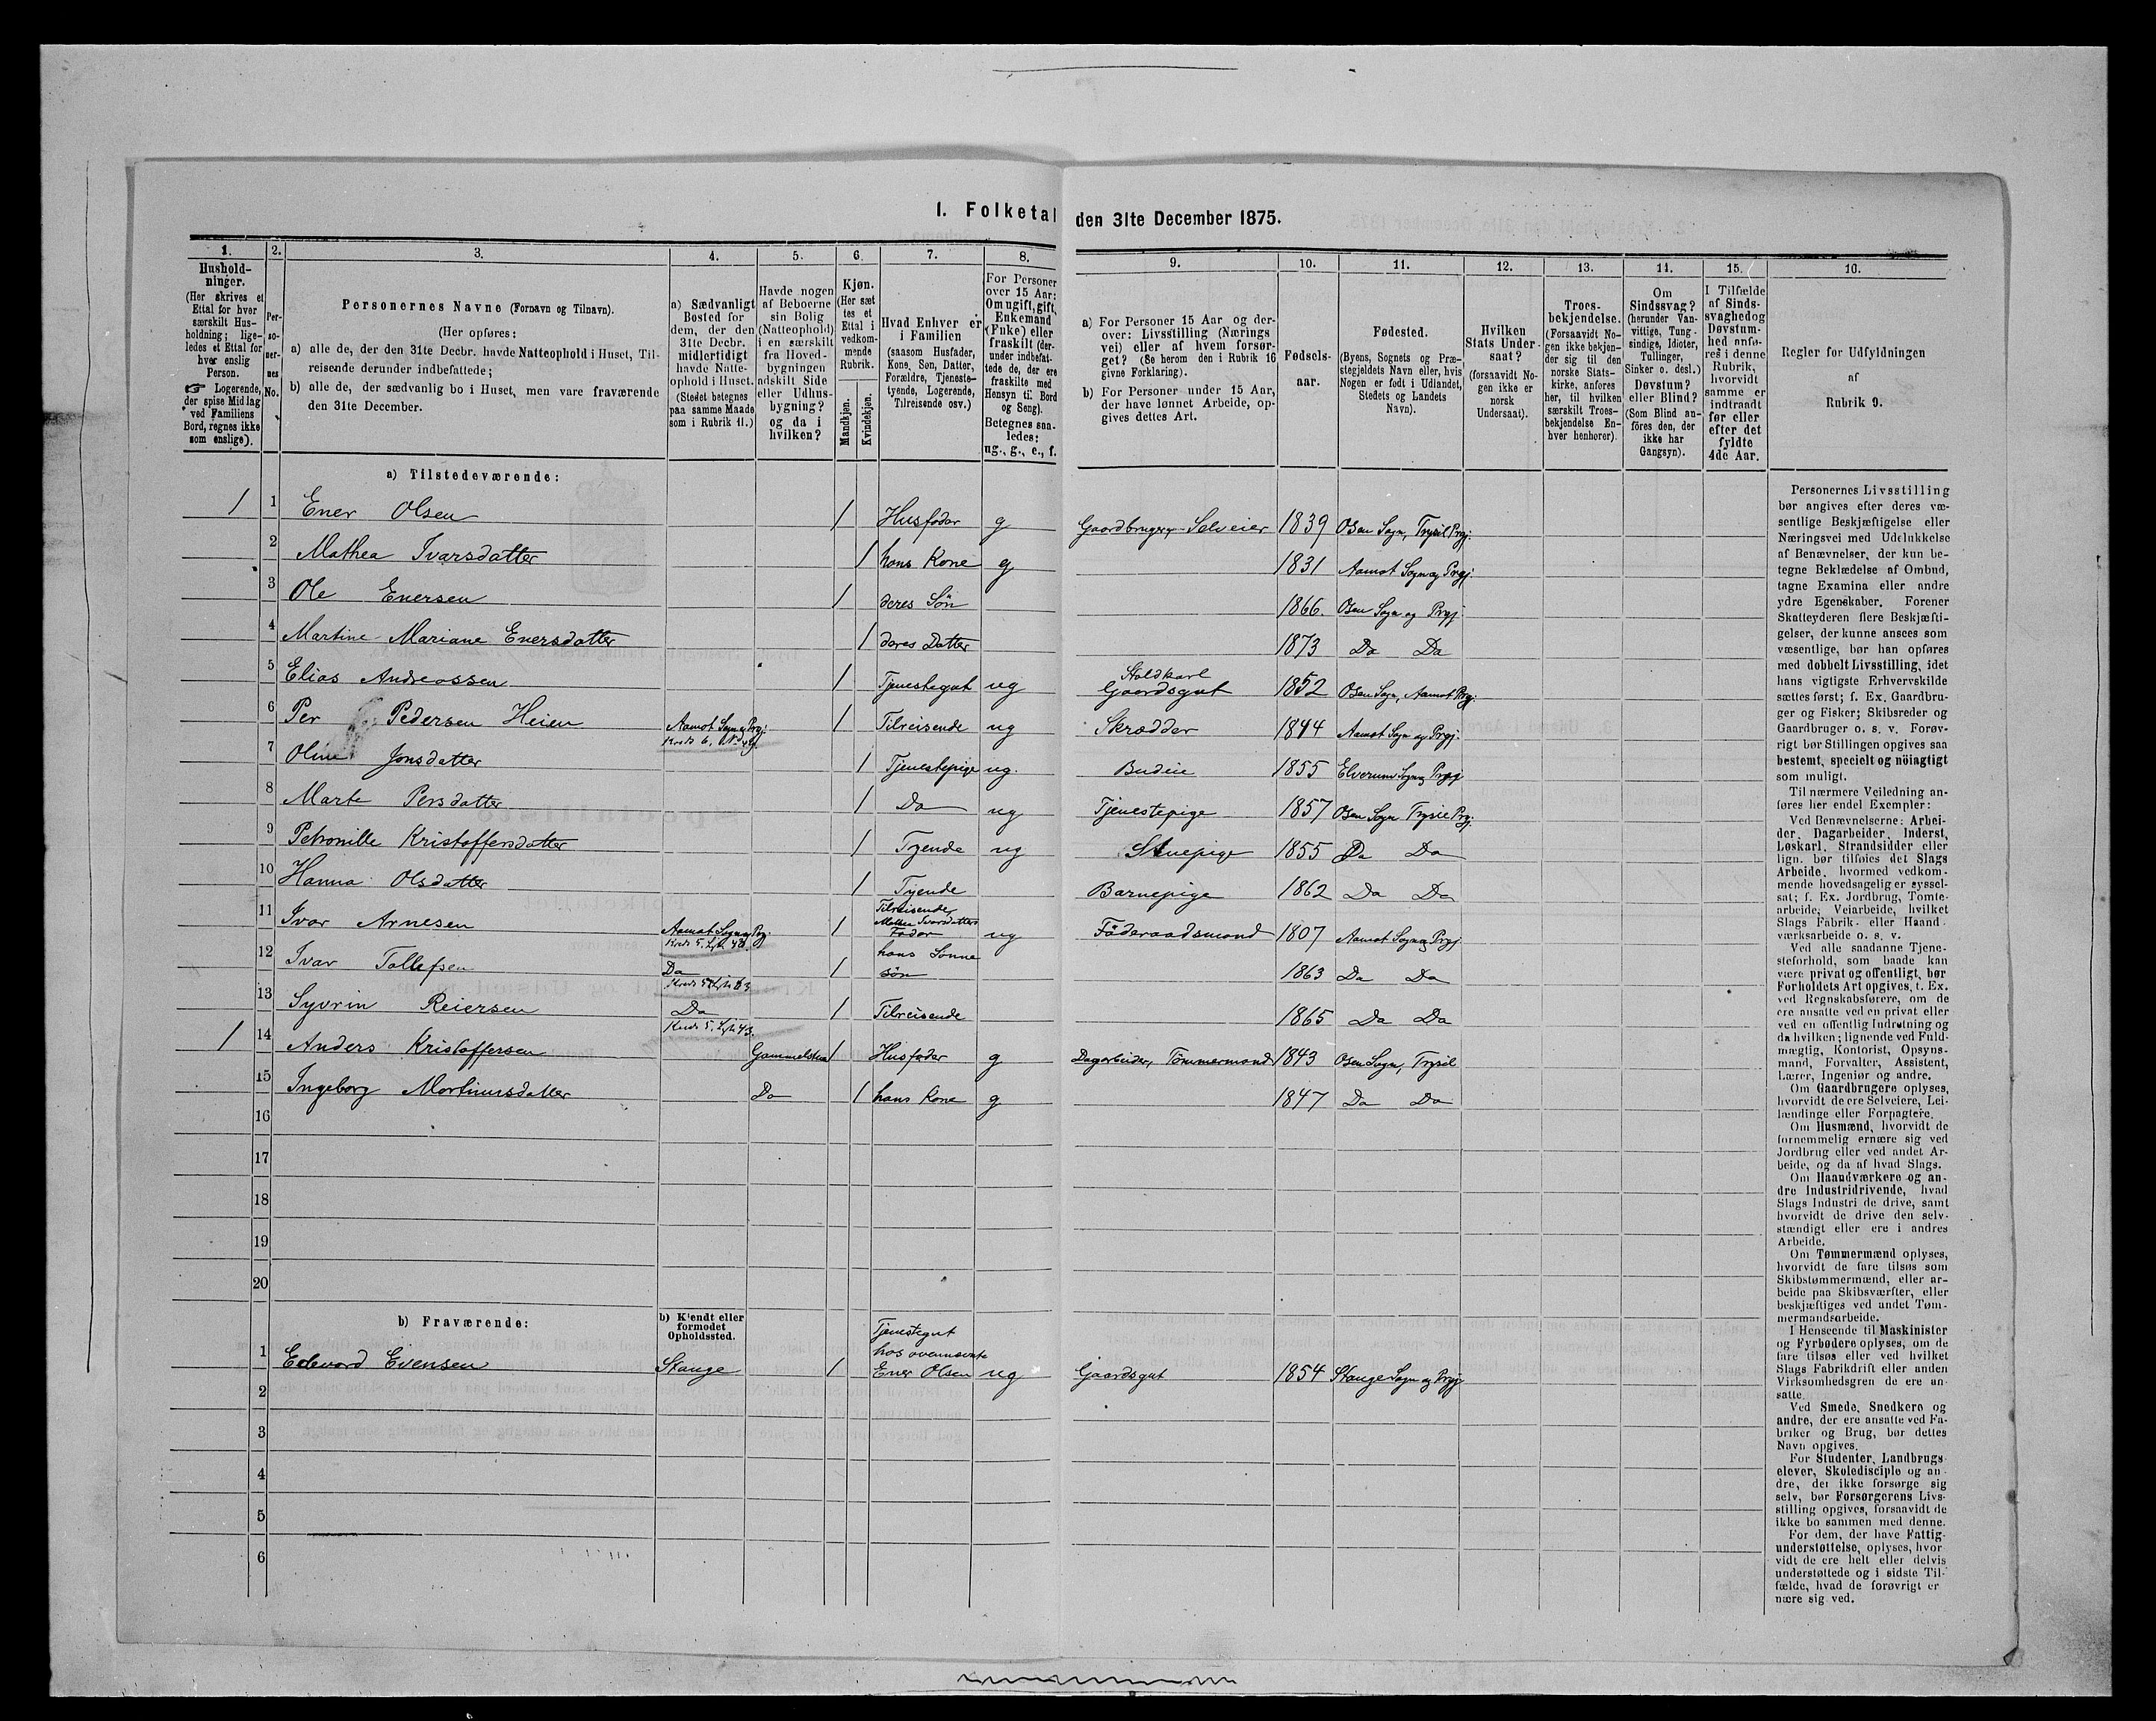 I. Folketal den 31te December 1875.
1. 2. 3. 4. 5. 6. 7. 8. 9. 10. 11. 12. 13. 14. 15. 16.
Hushold-
ninger.
(Her skrives et
Ettal for hver
særskilt Hus-
holdning; lige-
ledes et Ettal for
hver enslig
Person.
☞ Logerende,
der spise Middag
ved Familiens
Bord, regnes ikke
som enslige).
Per-
so-
ner-
nes
No.
Personernes Navne (Fornavn og Tilnavn).
(Her opføres:
a) alle de, der den 31te Decbr. havde Natteophold i Huset, Til-
reisende derunder indbefattede;
b) alle de, der sædvanlig bo i Huset, men vare fraværende
den 31te December.
a) Sædvanligt
Bosted for
dem, der den
31te Decbr.
midlertidigt
havde Natte-
ophold i Huset.
(Stedet betegnes
paa samme Maade
som i Rubrik 11.)
Havde nogen
af Beboerne
sin Bolig
(Natteophold)
i en særskilt
fra Hoved-
bygningen
adskilt Side
eller Udhus-
bygning?
og da i
hvilken?
Kjøn.
(Her sæt
tes et
Ettal i
vedkom-
mende
Rubrik.
Mandkjøn.
Kvindekjøn.
Hvad Enhver er
i Familien
(saasom Husfader,
Kone, Søn, Datter,
Forældre, Tjeneste-
tyende, Logerende,
Tilreisende osv.)
For Personer
over 15 Aar:
Om ugift, gift,
Enkemand
(Enke) eller
fraskilt (der-
under indbefat-
tede de, der ere
fraskilte med
Hensyn til Bord
og Seng).
Betegnes saa-
ledes:
ug., g., e., f.
a) For Personer 15 Aar og der-
over: Livsstilling (Nærings
vei) eller af hvem forsør-
get? (Se herom den i Rubrik 16
givne Forklaring).
b) For Personer under 15 Aar,
der have lønnet Arbeide, op-
gives dettes Art.
Fødsels-
aar.
Fødested.
(Byens, Sognets og Præ-
stegjeldets Navn eller, hvis
Nogen er født i Udlandet,
Stedets og Landets
Navn).
Hvilken
Stats Under-
saat?
(forsaavidt No-
gen ikke er
norsk
Undersaat).
Troes-
bekjendelse.
(Forsaavidt No-
gen ikke bekjen-
der sig til den
norske Stats-
kirke, anføres
her, til hvilken
særskilt Troes-
bekjendelse En-
hver henhører).
Om
Sindssvag?
(herunder Van-
vittige, Tung-
sindige, Idioter,
Tullinger,
Sinker o. desl.)
Døvstum?
eller Blind?
(Som Blind an-
føres den, der
ikke har
Gangsyn).
I Tilfælde
af Sinds-
svaghed og
Døvstum-
hed anfø-
res i denne
Rubrik,
hvorvidt
samme er
indtraadt
før eller
efter det
fyldte
4de Aar.
Regler for Udfyldningen
af
Rubrik 9.
a) Tilstedeværende:
1 1 Ener Olsen 1 Husfader g Gaardbruger, Selveier 1839 Osen Sogn, Trysil Prgj.
2 Mathea Ivarsdatter 1 hans Kone g 1831 Aamot Sogn og Prgj.
3 Ole Enersen 1 deres Søn 1866. Osen Sogn og Prgj
4 Martine Mariane Enersdatter 1 deres Datter 1873 Do Do
5 Elias Andreassen 1 Tjenestegut ug Staldkarl
Gaardsgut 1852 Osen Sogn, Aamot Prgj.
6 Per Pedersen Heien Aamot Sogn og Prgj. 1 Tilreisende ug Skrædder 1844 Aamot Sogn og Prgj.
7 Oline Jonsdatter 1 Tjenestepige ug. Budeie 1855 Elverum Sogn og Prgj
8 Marte Persdatter 1 Do ug Tjenestepige 1857 Osen Sogn Trysil Prgj.
9 Petronille Kristoffersdatter 1 Tyende ug Stuepige 1855 Do Do
10 Hanna Olsdatter 1 Tyende Barnepige 1862 Do Do
11 Ivar Arnesen Aamot Sogn og Prgj.
Kreds 5. 1 Tilreisende,
Mathea Ivarsdatters
Fader ug Føderaadsmand 1807 Aamot Sogn og Prgj
12 Ivar Tollefsen Do 1 hans Sønne
søn 1863 Do Do
13 Syvrin Reiersen Do
Kreds 5. 1 Tilreisende 1865 Do Do
1 14 Anders Kristoffersen Gammelstua 1 Husfader g Dagarbeider, Tømmermand 1843 Osen Sogn, Trysil
15 Ingeborg Mortinusdatter Do 1 hans Kone g 1847 Do Do
16
17
18
19
20
b) Fraværende:
b) Kjendt eller
formodet
Opholdssted.
1 Edevard Evensen Stange 1 Tjenestegut
hos ovennævnte
Ener Olsen ug Gaardsgut 1854 Stange Sogn og Prgj
2
3
4
5
6
Personernes Livsstilling
bør angives efter deres væ-
sentlige Beskjæftigelse eller
Næringsvei med Udelukkelse
af Benævnelser, der kun be-
tegne Beklædelse af Ombud,
tagne Examina eller andre
ydre Egenskaber. Forener
Skatteyderen flere Beskjæfti-
gelser, der kunne ansees som
væsentlige, bør han opføres
med dobbelt Livsstilling, idet
hans vigtigste Erhvervskilde
sættes først; f. Ex. Gaardbru-
ger og Fisker; Skibsreder og
Gaardbruger o. s. v. Forøv-
rigt bør Stillingen opgives saa
bestemt, specielt og nöiagtigt
som muligt.
Til nærmere Veiledning an-
føres her endel Exempler:
Ved Benævnelserne: Arbei-
der, Dagarbeider, Inderst,
Løskarl, Strandsidder eller
lign. bør tilføies det Slags
Arbeide, hvormed vedkom-
mende hovedsagelig er syssel-
sat; f. Ex. Jordbrug, Tomte-
arbeide, Veiarbeide, hvilket
Slags Fabrik- eller Haand-
værksarbeide o. s. v.
Ved alle saadanne Tjene-
steforhold, som baade kan
være privat og offentligt, bør
Forholdets Art opgives, t. Ex.
ved Regnskabsførere, om de
ere ansatte ved en privat eller
ved en offentlig Indretning og
da hvilken; lignende ved Fuld-
mægtig, Kontorist, Opsyns-
mand, Forvalter, Assistent,
Lærer, Ingeniør og andre.
Om Gaardbrugere oplyses,
hvorvidt de ere Selveiere, Lei-
lændinge eller Forpagtere.
Om Husmænd, hvorvidt de
fornemmelig ernære sig ved
Jordbrug eller ved andet Ar-
beide, og da af hvad Slags.
Om Haandværkere og an-
dre Industridrivende, hvad
Slags Industri de drive, samt
hvorvidt de drive den selv-
stændigt eller ere i andres
Arbeide.
Om Tømmermænd oplyses,
hvorvidt de fare tilsøs som
Skibstømmermænd, eller ar-
beide paa Skibsværfter, eller
beskjæftiges ved andet Tøm-
mermandsarbeide.
I Henseende til Maskinister
og Fyrbødere oplyses, om de
fare tilsøs eller ved hvilket
Slags Fabrikdrift eller anden
Virksomhedsgren de ere an-
satte.
Ved Smede, Snedkere og
andre, der ere ansatte ved Fa-
briker og Brug, bør dettes
Navn opgives.
For Studenter, Landbrugs-
elever, Skoledisciple og an-
dre, der ikke forsørge sig
selv, bør Forsørgerens Livs-
stilling opgives, forsaavidt de
ikke bo sammen med denne.
For dem, der have Fattig-
understøttelse, oplyses, hvor-
vidt de ere helt eller delvis
understøttede og i sidste Til-
fælde, hvad de forøvrigt er
nære sig ved.